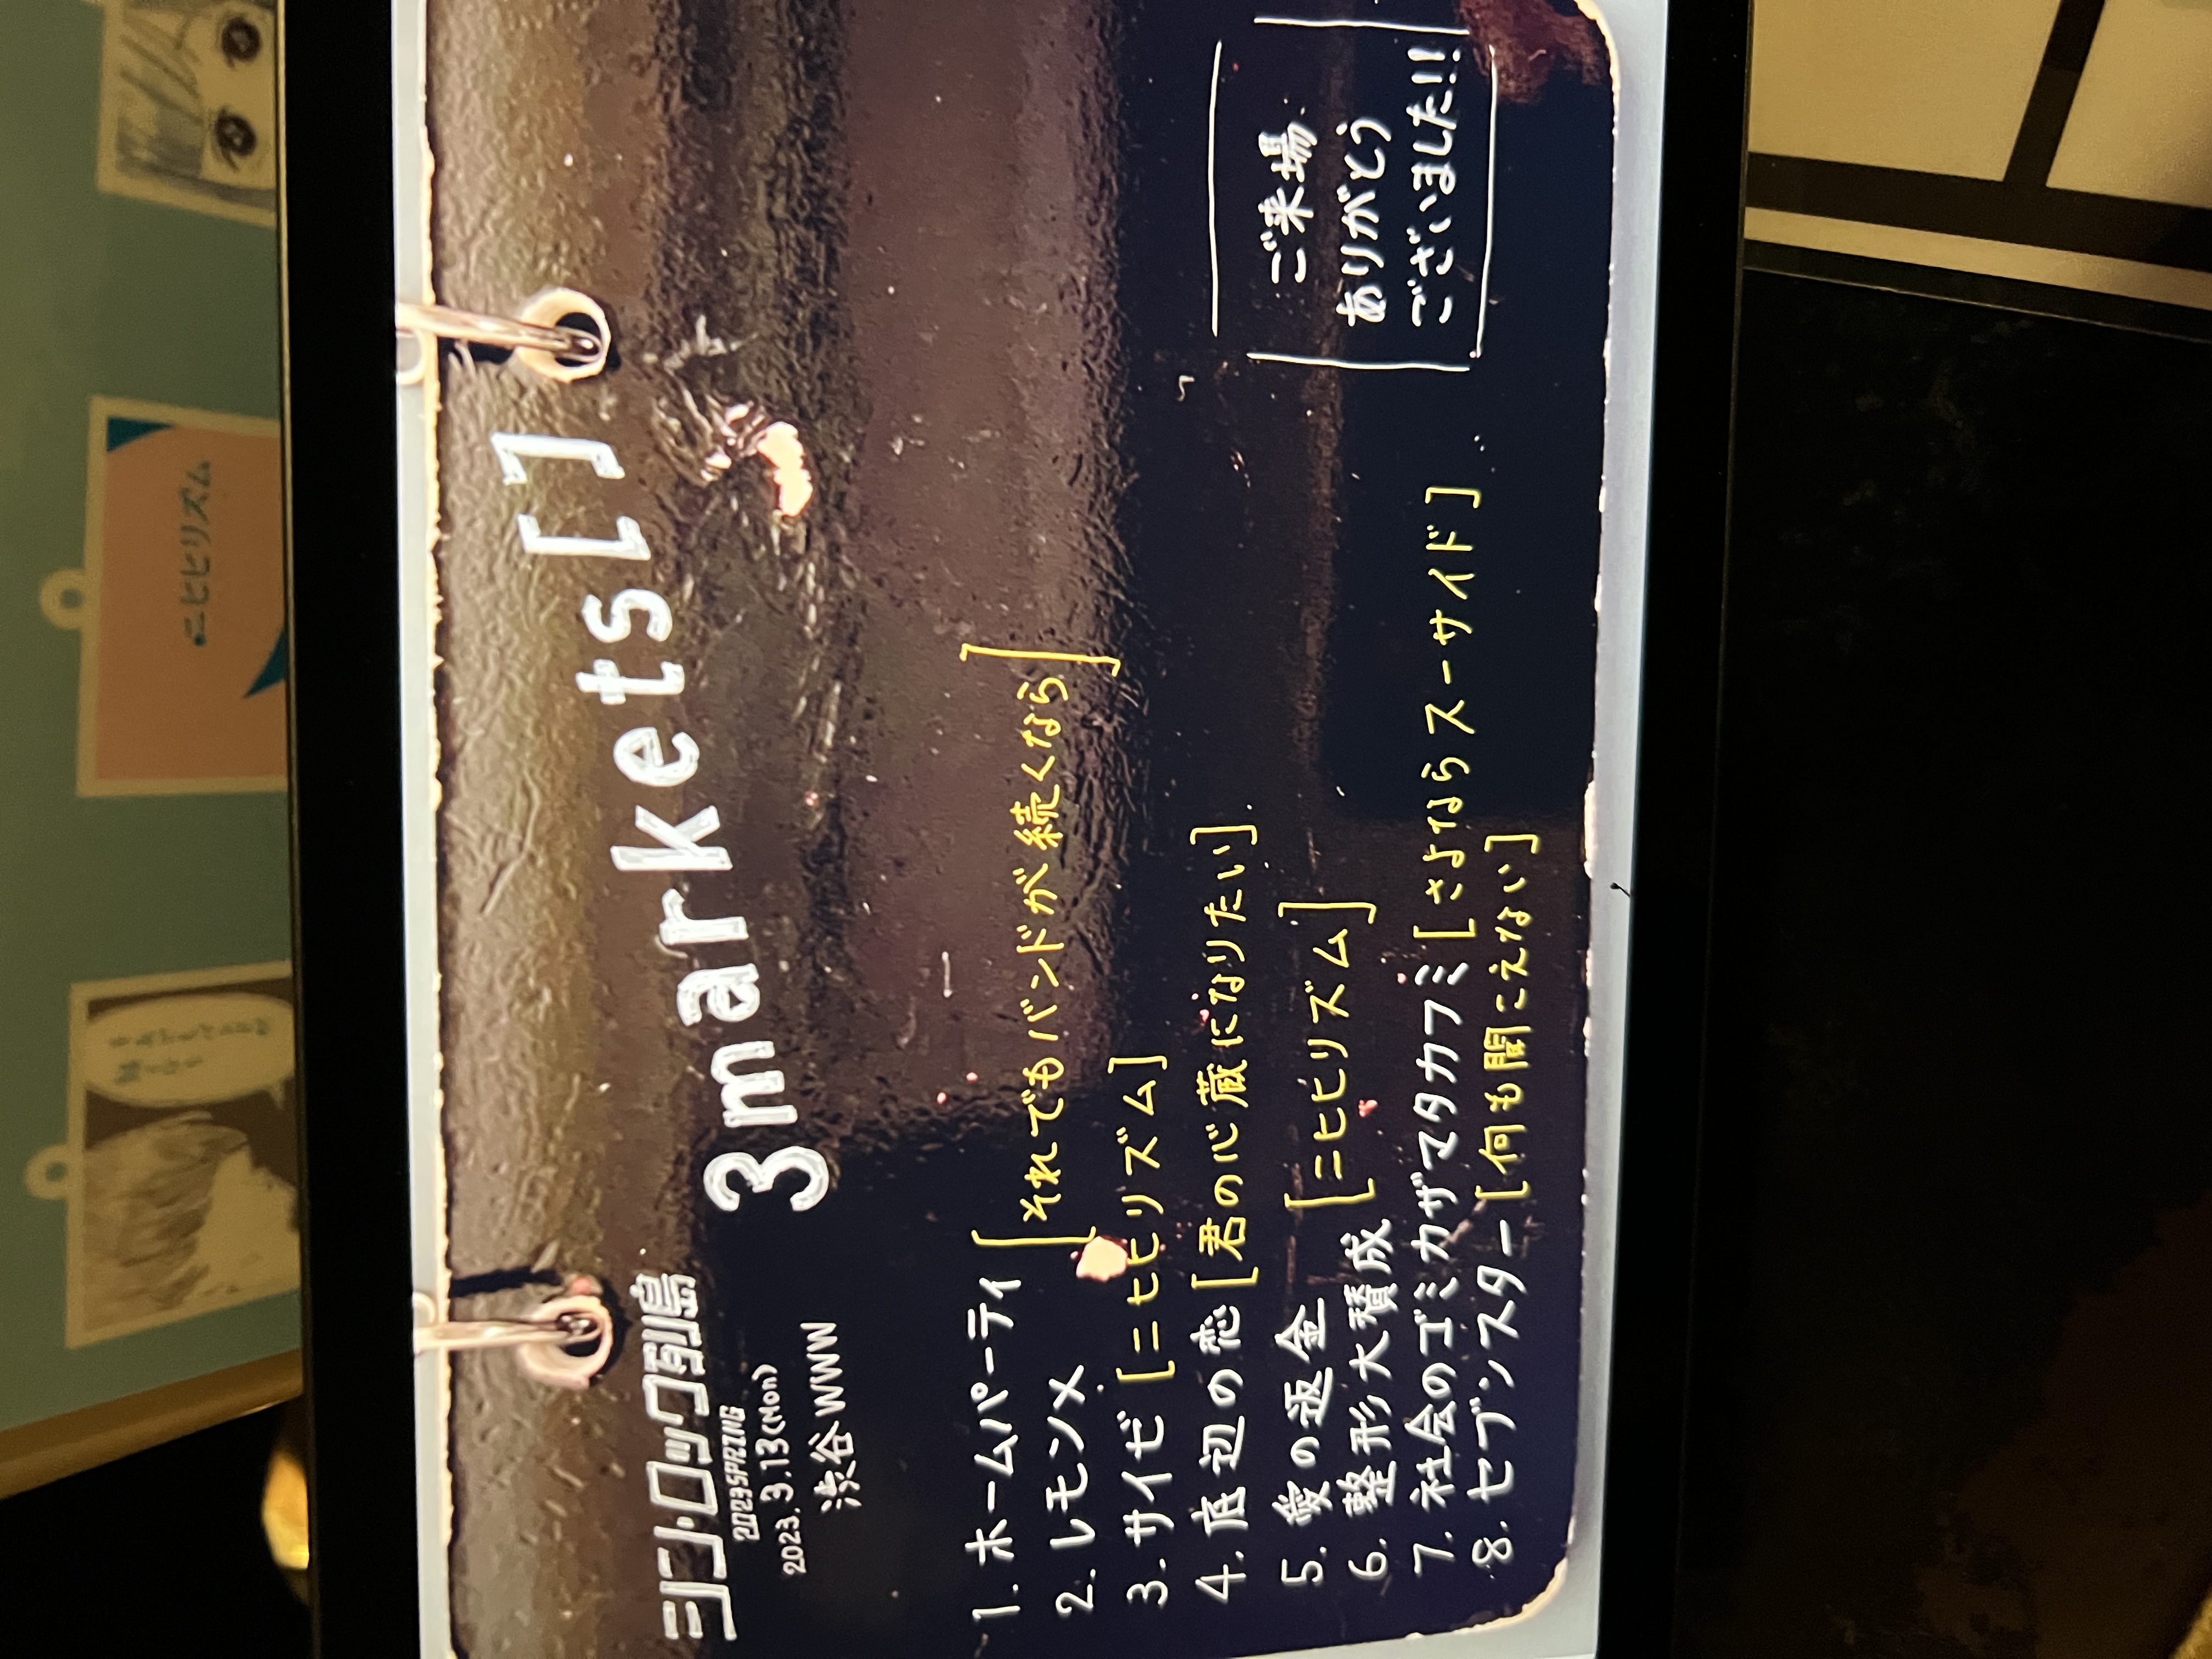 ニヒヒリズム
シン・ロック列島
2023SPRING
2023.3.13(Mon)
渋谷WWW
3markets[]
1. ホームパーティ
2. レモン×
[それでもバンドが続くなら]
3. サイゼ [ニヒヒリズム]
4. 底辺の恋 [君の心蔵になりたい]
5. 愛の返金
6. 整形大賛成
[ニヒヒリズム]
7. 社会のゴミカザマタカフミ [さよならスーサイド]
8. セブンスター [何も聞こえない]
ご来場
ありがとう
ございました!!